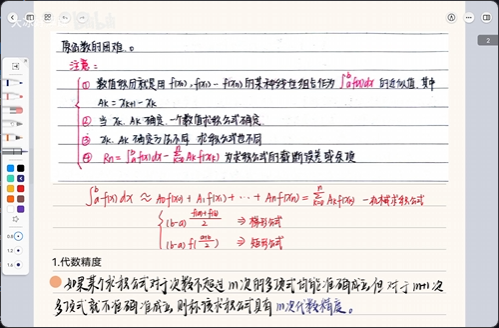 原函数的困难。
注意:
① 数值积分就是用 f(x₀), f(x₁)…f(xₙ)的某种线性组合作为 ∫ₐᵇ f(x)dx 的近似值. 其中
Ak = xk+1 - xk
② 当 xk, Ak 确定, 一个数值求积公式确定
③ xk, Ak 确定方法不同, 求积公式也不同
④ Rn = ∫ₐᵇ f(x)dx - Σₖ₌₀ⁿ Ak f(xk) 为求积公式的截断误差或余项
∫ₐᵇ f(x)dx ≈ A₀f(x₀) + A₁f(x₁) + ··· + Anf(xn) = Σₖ₌₀ⁿ Akf(xk) —机械求积公式
(b-a) f(a)+f(b)/2 ⇒ 梯形公式
(b-a) f(a+b/2) ⇒ 矩形公式
1.代数精度
如果某个求积公式对于次数不超过m次的多项式均能准确成立, 但对于m+1次
多项式就不准确成立, 则称该求积公式具有m次代数精度。
2